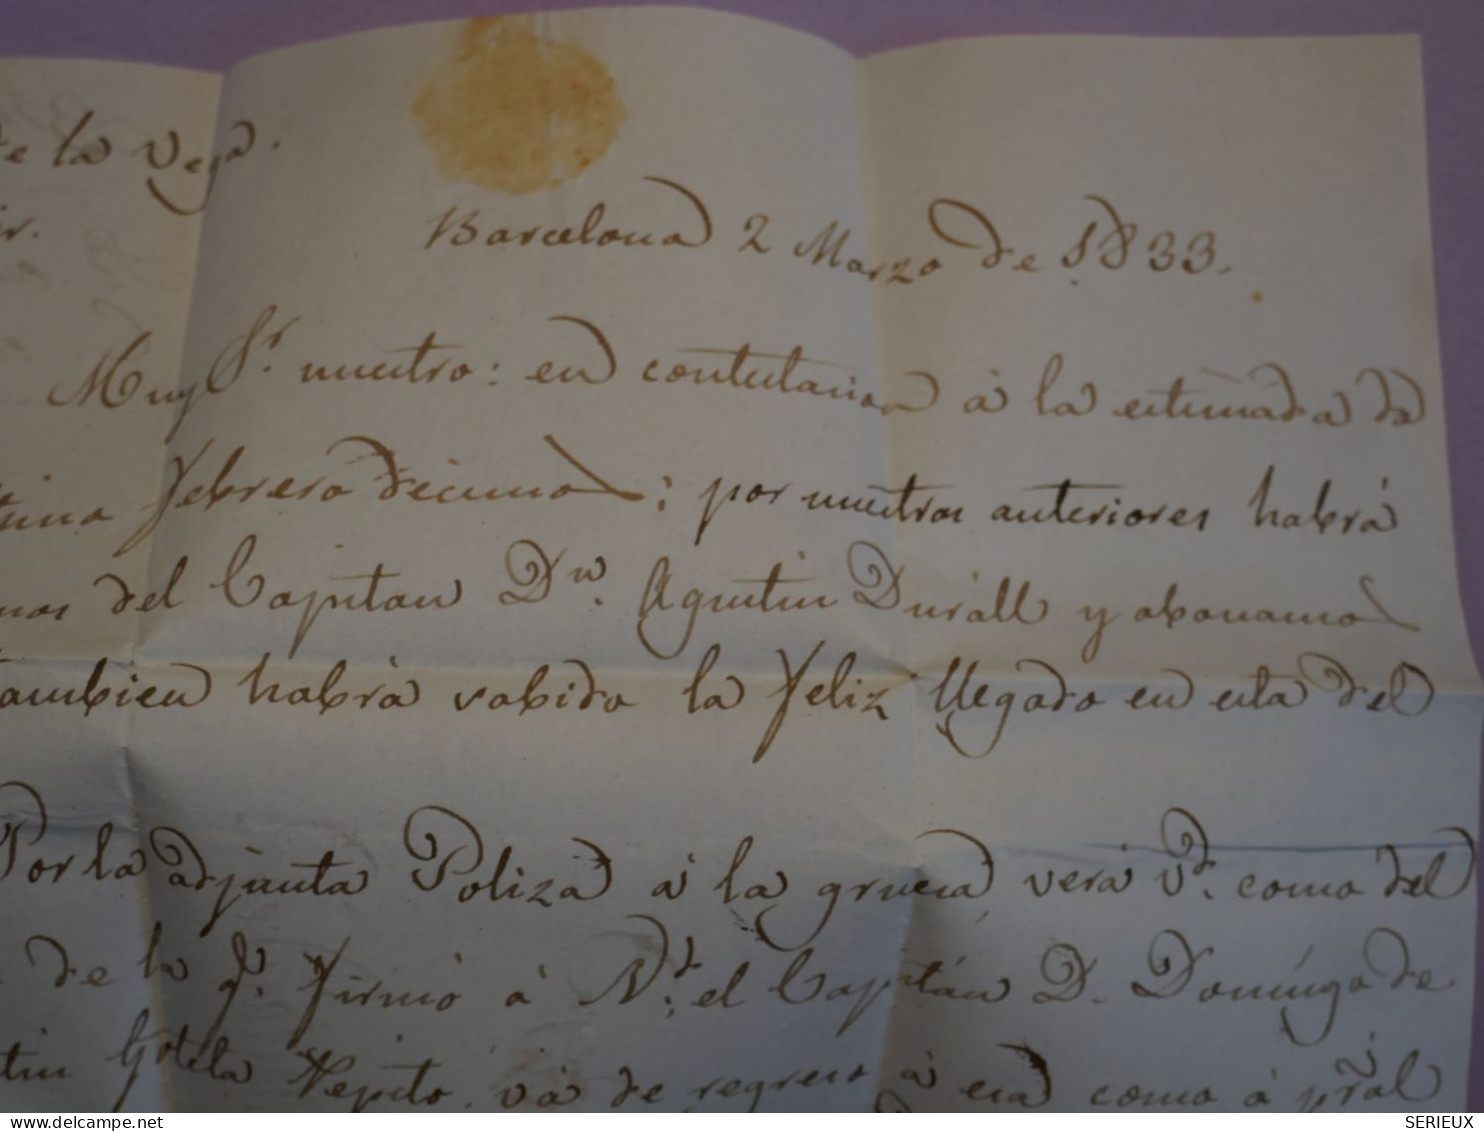 de la Vega.
Barcelona 2 Marzo de 1833.
Muy Sr. nuestro: en contestacion à la estimada de
Febrero decimos; por nuestras anteriores habrá
del Capitan Dn. Agustin Durall y abonamos
tambien habrá sabido la feliz llegada en esta del
Por la adjunta Poliza à la gruesa verá Vd. como del
de la q. firmó à Nd. el Capitán D. Domíngo de
Goleta Pepito, và de regreso à esa como à pral
SERIEUX